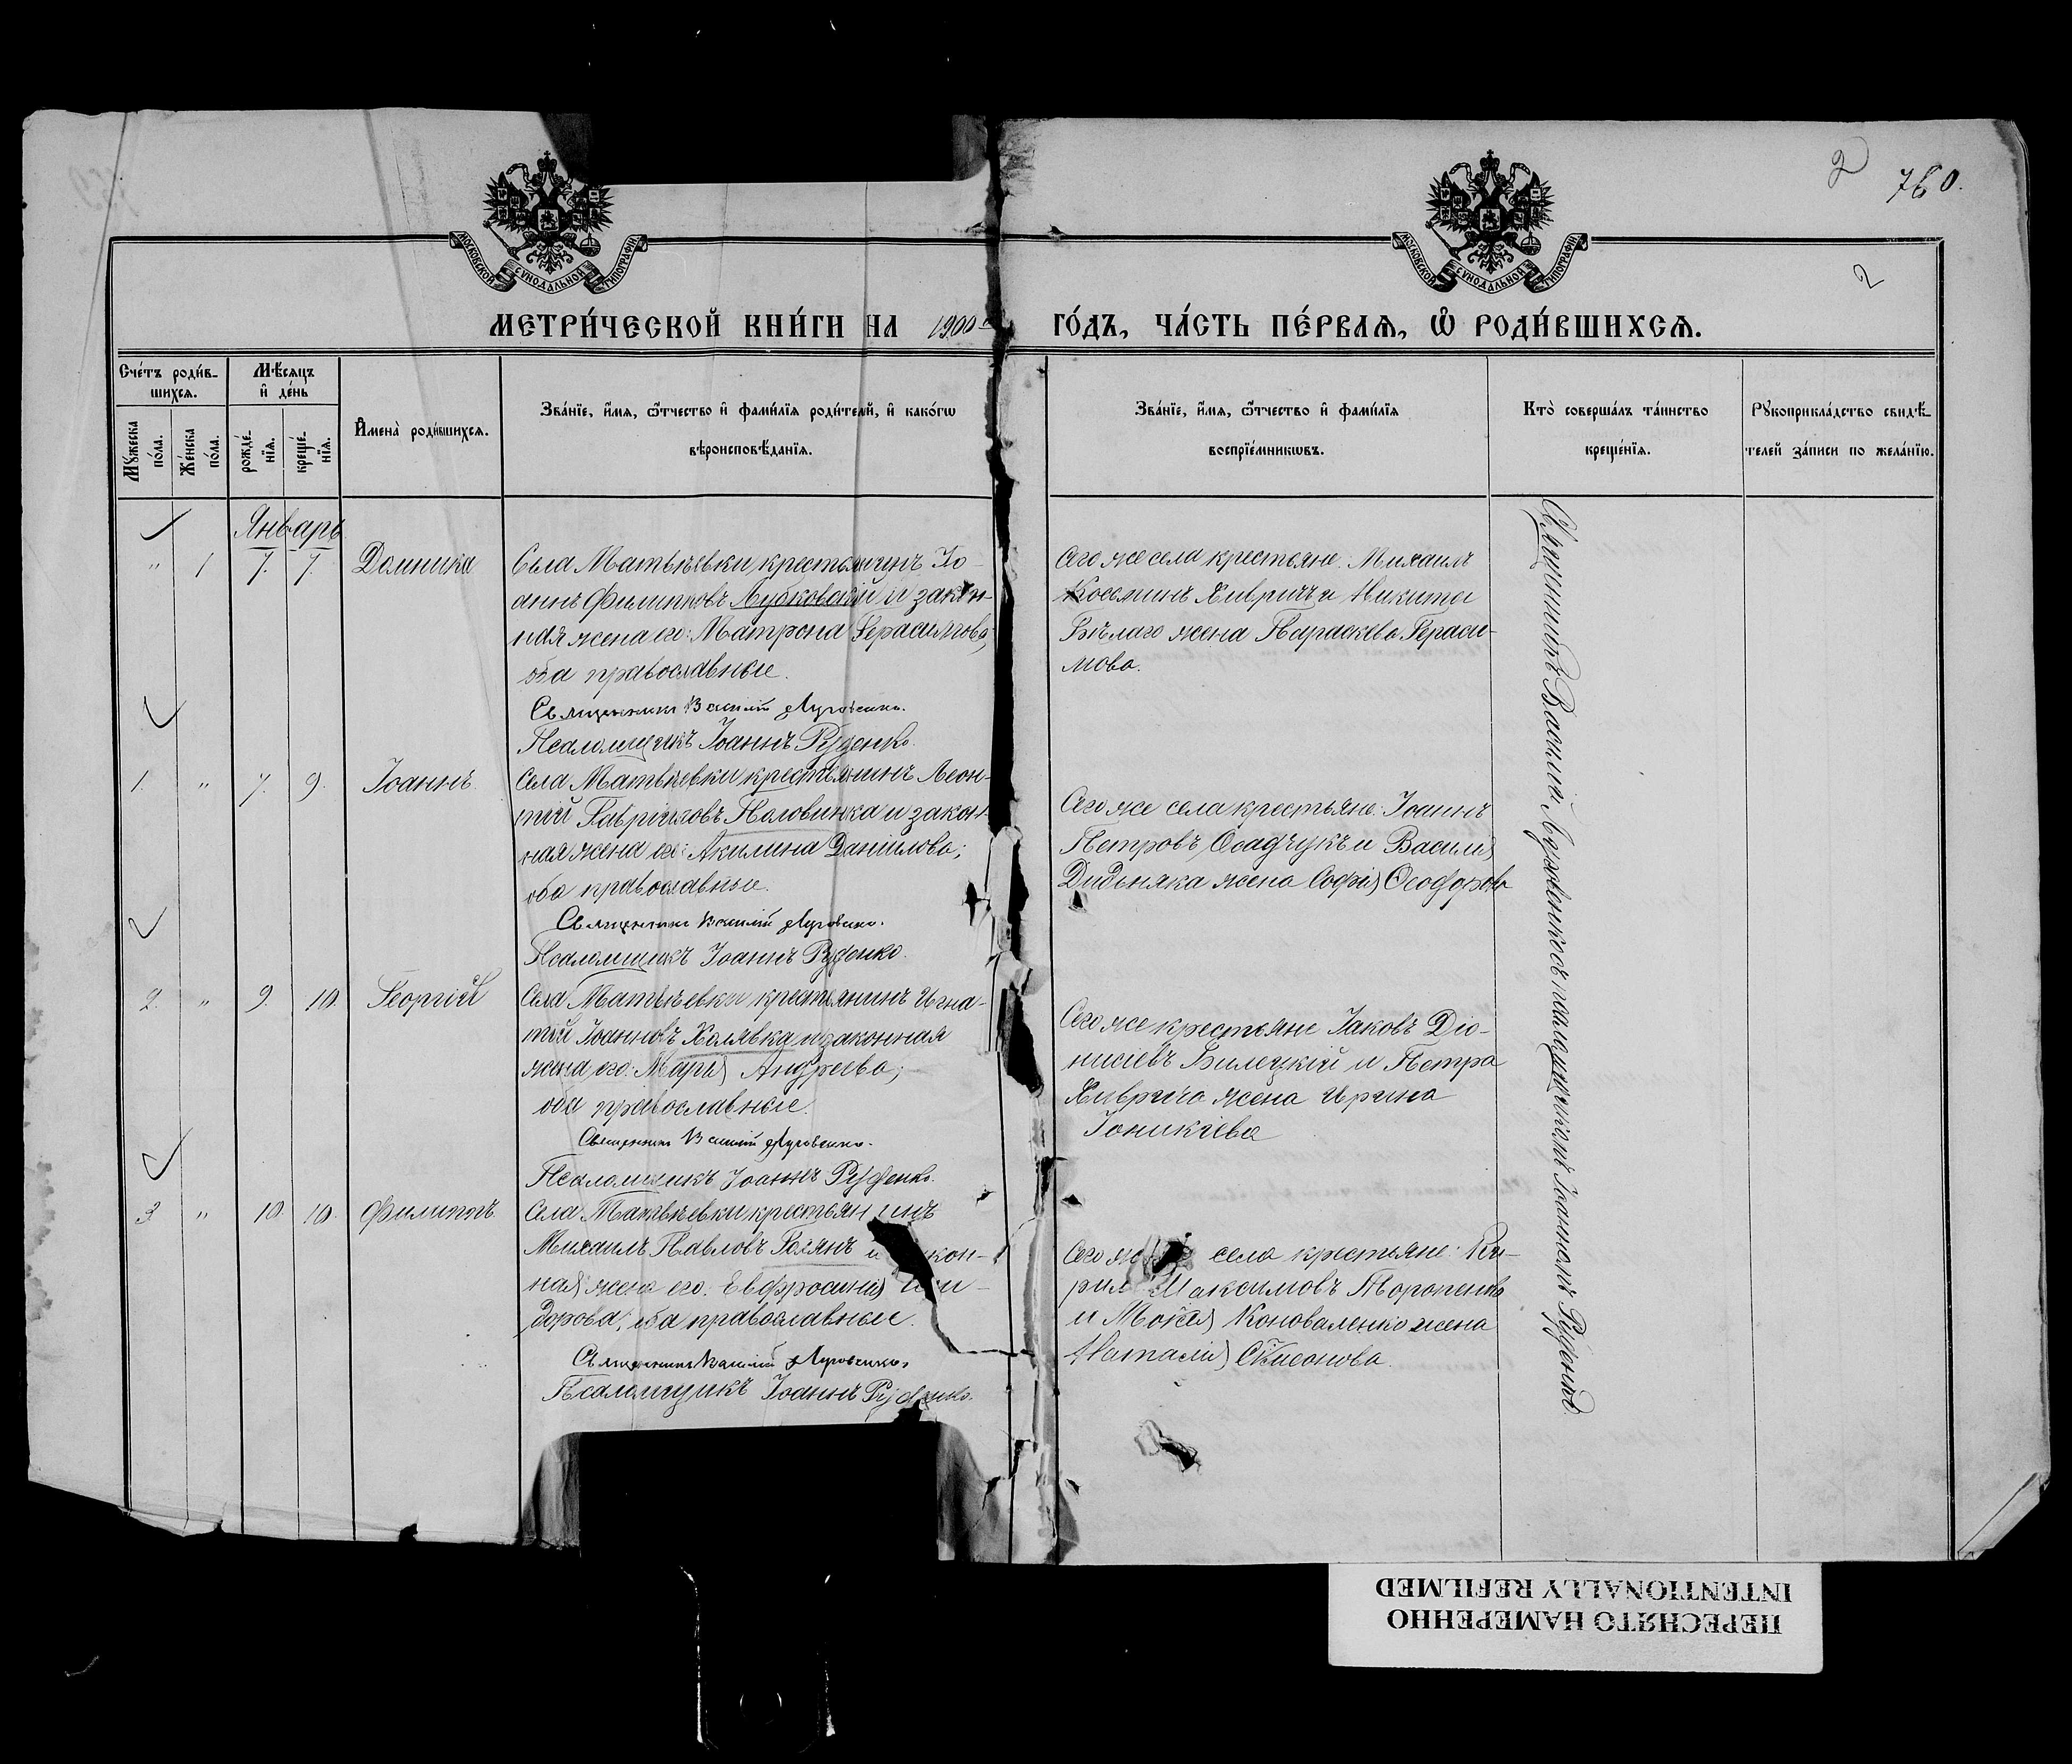 2
760.
2
МОСКОВСКОЙ СУНОДАЛЬНОЙ ТИПОГРАФІИ
МОСКОВСКОЙ СУНОДАЛЬНОЙ ТИПОГРАФІИ
МЕТРИ́ЧЕСКОЙ КНИ́ГИ НА 1900й ГО́ДЪ, ЧА́СТЬ ПЕ́РВАѦ, Ѽ РОДИ́ВШИХСѦ.
Сче́тъ роди́в-
шихсѧ.
Мѣ́сѧцъ
и҆ де́нь
Мꙋ́жеска
по́ла.
Же́нска
по́ла.
рожде́-
нїѧ.
креще́-
нїѧ.
И҆мена̀ роди́вшихсѧ.
Зва́нїе, и҆́мѧ, ѻ҆́тчество и҆ фами́лїѧ роди́телей, и҆ како́гѡ
вѣроисповѣ́данїѧ.
Зва́нїе, и҆́мѧ, ѻ҆́тчество и҆ фами́лїѧ
воспрїе́мникѡвъ.
Кто̀ соверша́лъ та́инство
креще́нїѧ.
Рꙋкоприкла́дство свидѣ́-
телей за́писи по жела́нїю.
Январь
" 1 7. 7. Домника
Села Матвѣевки крестьянинъ Іо-
аннъ Филипповъ Лубковскій и закон-
ная жена его: Матрона Герасимова,
оба православные.
Священникъ Василій Луговенко.
Псаломщикъ Іоаннъ Руденко.
Сего же села крестьяне: Михаилъ
Косминъ Хивричъ и Никиты
Бѣлаго жена Параскева Гераси-
мова.
1. " 7. 9. Іоаннъ.
Села Матвѣевки крестьянинъ Леон-
тій Гавріиловъ Половинка и закон-
ная жена его: Акилина Даніилова;
оба православные.
Священникъ Василій Луговенко.
Псаломщикъ Іоаннъ Руденко.
Сего же села крестьяне: Іоаннъ
Петровъ Осадчукъ и Василія
Диденяка жена Софія Ѳеодорова
2. " 9. 10 Георгій
Села Матвѣевки крестьянинъ Игна-
тій Іоанновъ Халявка и законная
жена его: Марія Андреева;
оба православные.
Священникъ Василій Луговенко.
Псаломщикъ Іоаннъ Руденко.
Сего же крестьяне Іаковъ Діо-
нисіевъ Билецкій и Петра
Хиврича жена Ирина
Іоникіева
3 " 10. 10. Филиппъ.
Села Матвѣевки крестьянинъ
Михаилъ Павловъ и кон-
ная жена его: Евфросинія
дорова; оба православные.
Священникъ Василій Луговенко.
Псаломщикъ Іоаннъ Руденко.
Сего же села крестьяне: Ки-
рил Максимовъ Торопенко
и Мокія Коноваленко жена
Наталія Симеонова.
Священникъ Василій Луговенко съ псаломщикомъ Іоанномъ Руденко.
ПЕРЕСНЯТО НАМЕРЕННО
INTENTIONALLY REFILMED